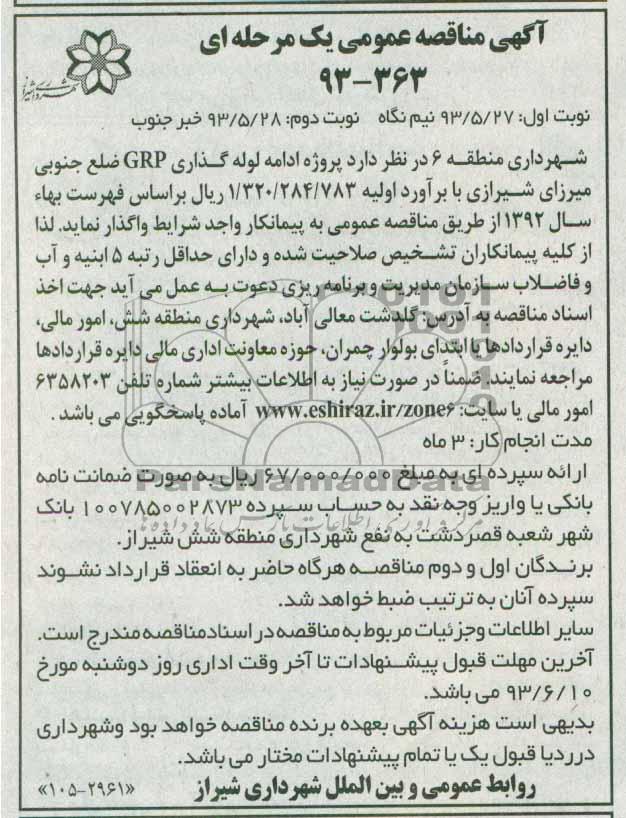 آگهی مناقصه عمومی یک مرحله ای
۹۳-۳۶۳
شهرداری شیراز
نوبت اول: ۹۳/۵/۲۷ نیم نگاه نوبت دوم: ۹۳/۵/۲۸ خبر جنوب
شهرداری منطقه ۶ در نظر دارد پروژه ادامه لوله گذاری GRP ضلع جنوبی
میرزای شیرازی با برآورد اولیه ۱/۳۲۰/۲۸۴/۷۸۳ ریال براساس فهرست بهاء
سال ۱۳۹۲ از طریق مناقصه عمومی به پیمانکار واجد شرایط واگذار نماید. لذا
از کلیه پیمانکاران تشخیص صلاحیت شده و دارای حداقل رتبه ۵ ابنیه و آب
و فاضلاب سازمان مدیریت و برنامه ریزی دعوت به عمل می آید جهت اخذ
اسناد مناقصه به آدرس: گلدشت معالی آباد، شهرداری منطقه شش، امور مالی،
دایره قراردادها یا ابتدای بولوار چمران، حوزه معاونت اداری مالی دایره قراردادها
مراجعه نمایند. ضمناً در صورت نیاز به اطلاعات بیشتر شماره تلفن ۶۳۵۸۲۰۳
امور مالی یا سایت: www.eshiraz.ir/zone۶ آماده پاسخگویی می باشد .
مدت انجام کار: ۳ ماه
ارائه سپرده ای به مبلغ ۶۷/۰۰۰/۰۰۰ ریال به صورت ضمانت نامه
ParsNamadData
بانکی یا واریز وجه نقد به حساب سپرده ۱۰۰۷۸۵۰۰۲۸۷۳ بانک
شهر شعبه قصردشت به نفع شهرداری منطقه شش شیراز.
برندگان اول و دوم مناقصه هرگاه حاضر به انعقاد قرارداد نشوند
سپرده آنان به ترتیب ضبط خواهد شد.
سایر اطلاعات و جزئیات مربوط به مناقصه در اسناد مناقصه مندرج است.
آخرین مهلت قبول پیشنهادات تا آخر وقت اداری روز دوشنبه مورخ
۹۳/۶/۱۰ می باشد.
بدیهی است هزینه آگهی بعهده برنده مناقصه خواهد بود وشهرداری
درردیا قبول یک یا تمام پیشنهادات مختار می باشد.
روابط عمومی و بین الملل شهرداری شیراز «۱۰۵-۲۹۶۱»